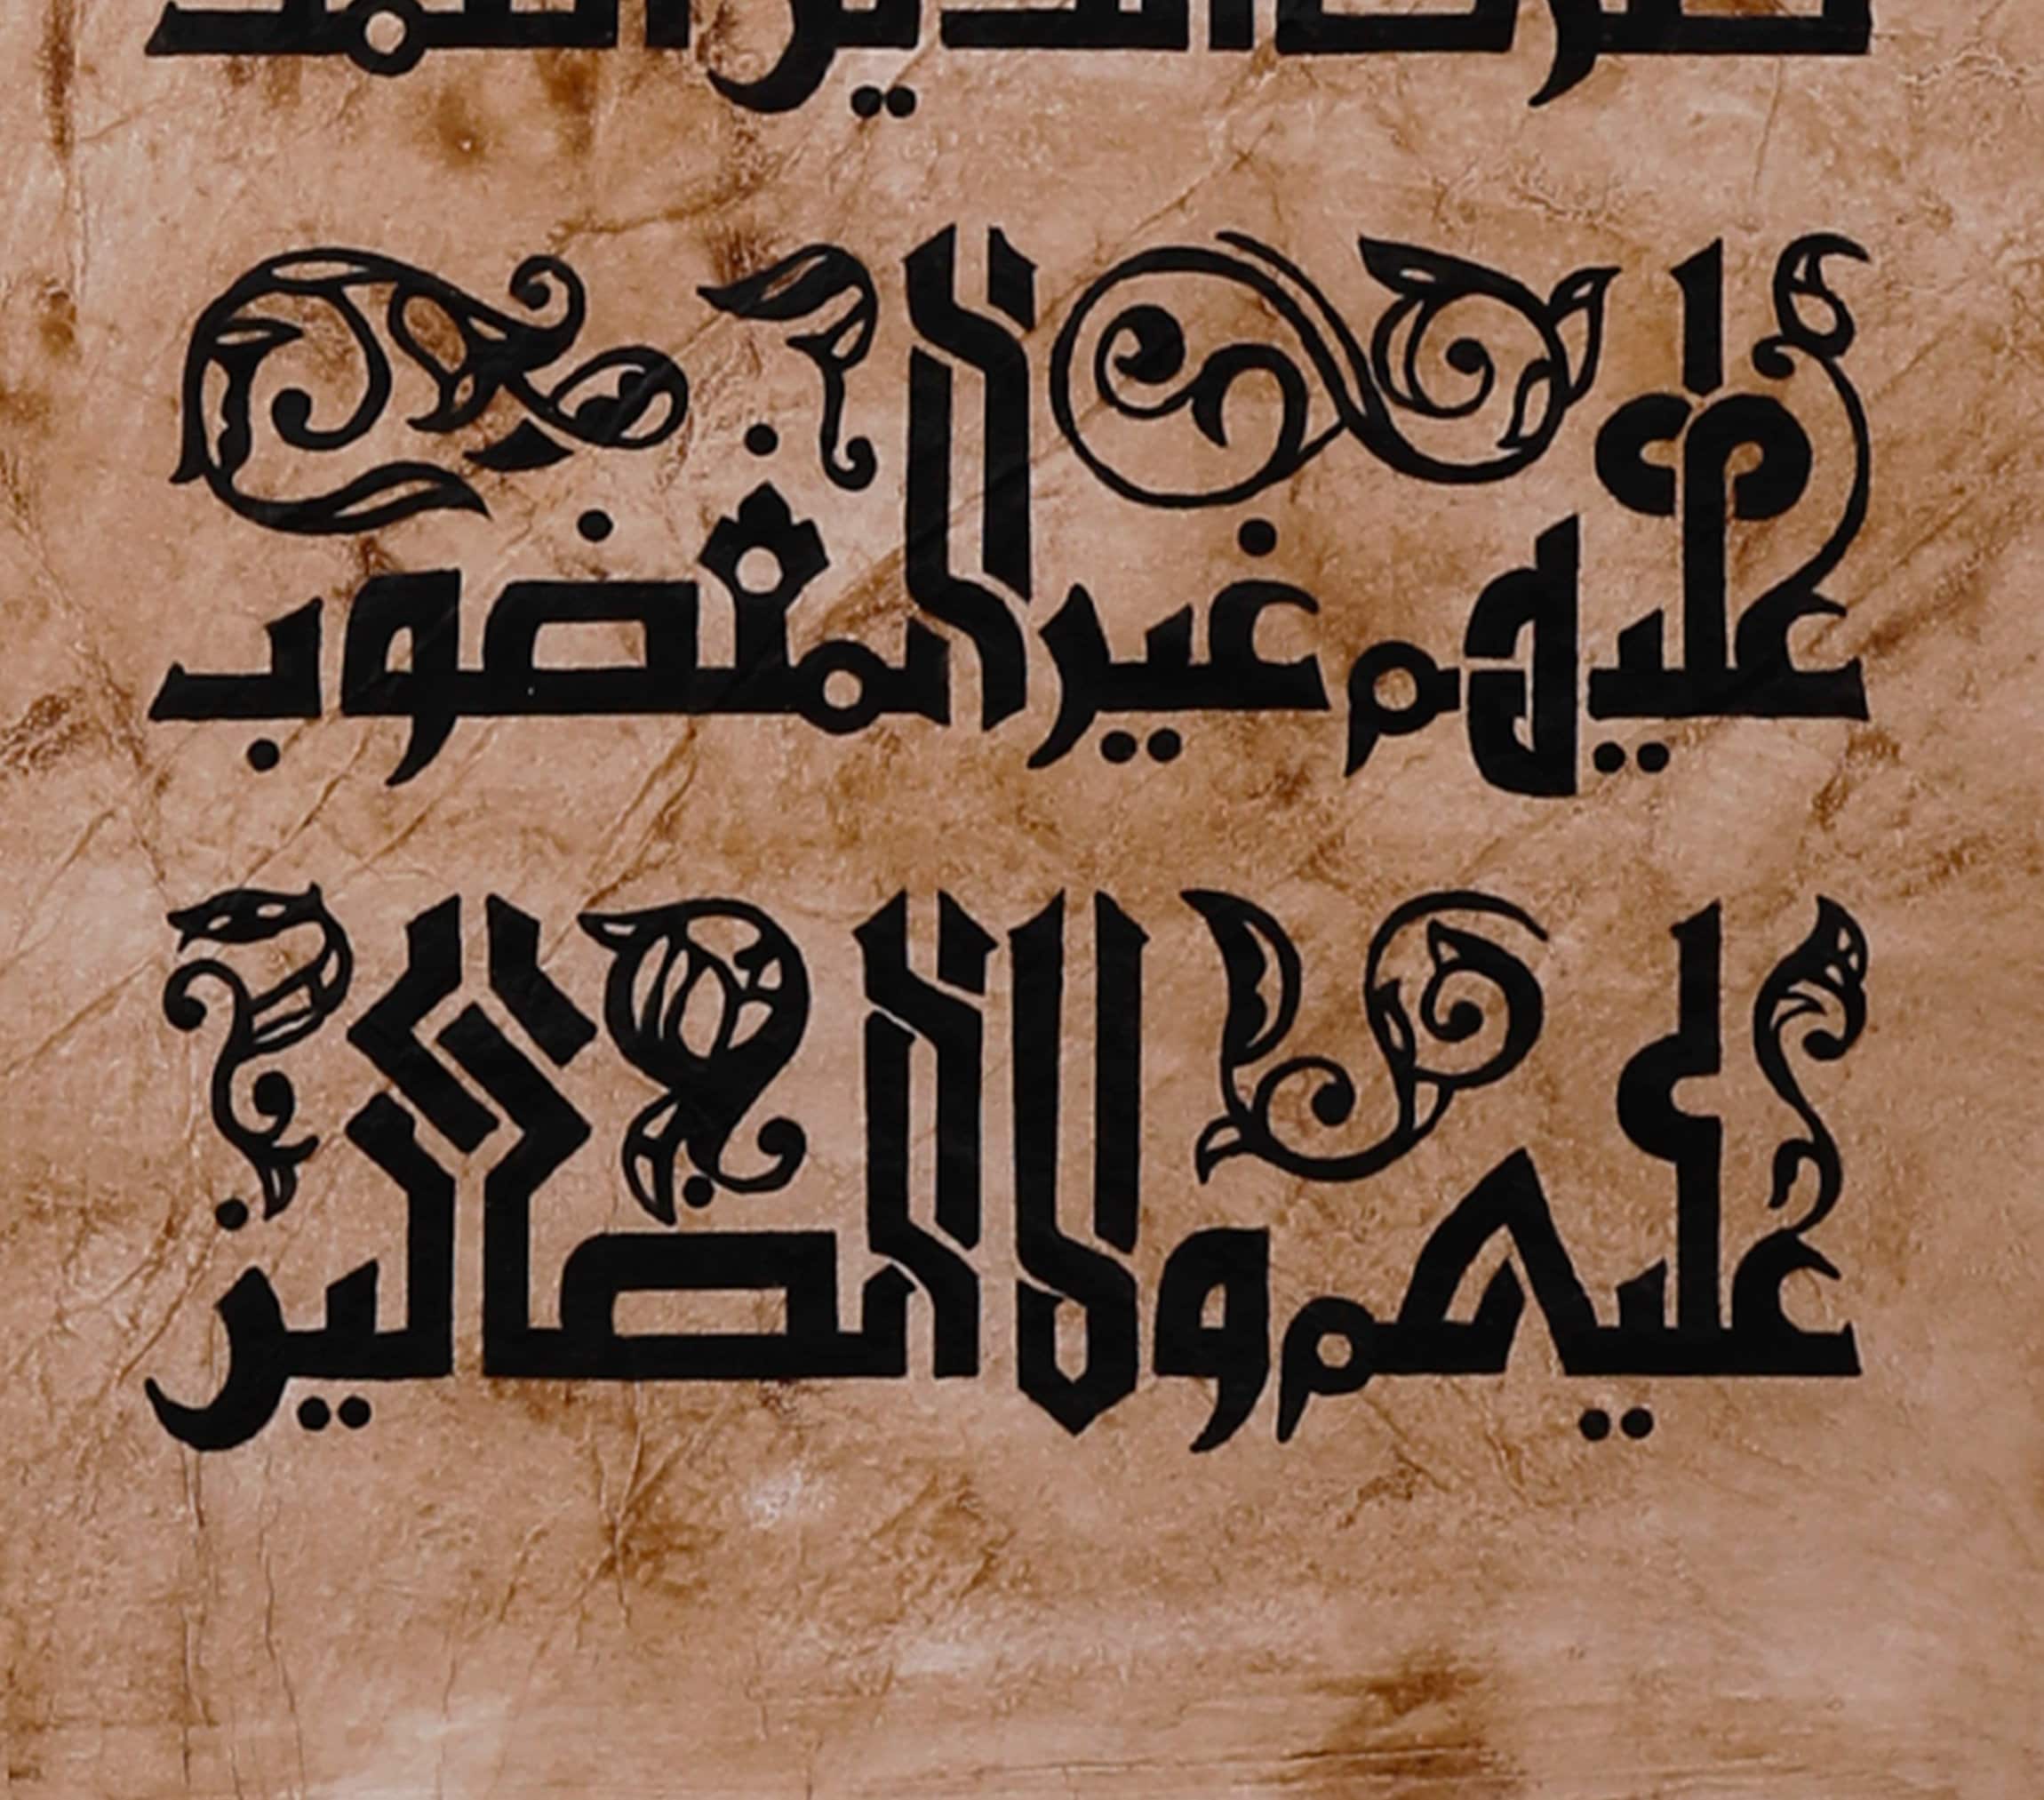 صرط الذين انعمت
عليهم غير المغضوب
عليهم ولا الضالين